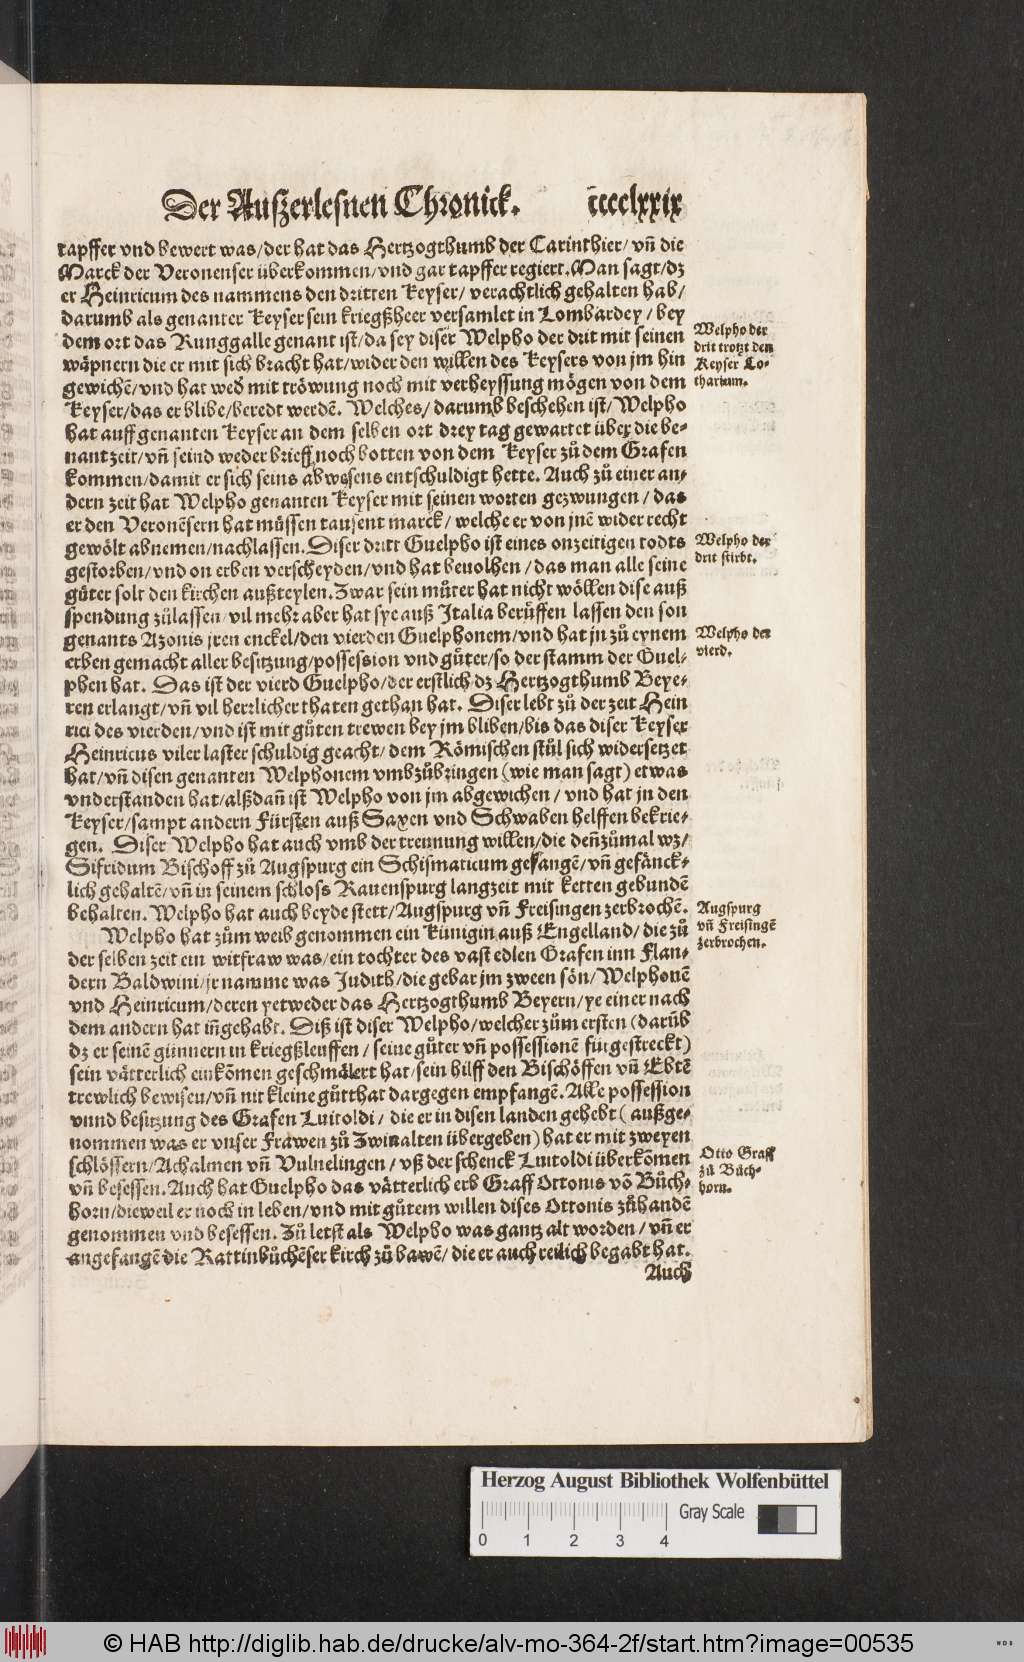 Der Außerlesnen Chronick. c̄cccclxxix
tapffer vnd bewert was/der hat das Hertzogthumb der Carinthier/ vn̄ die
Marck der Veronenser überkommen/vnd gar tapffer regiert. Man sagt/dz
er Heinricum des nammens den dritten Keyser/ verachtlich gehalten hab/
darumb als genanter Keyser sein kriegßheer versamlet in Lombardey/ bey
dem ort das Runggalle genant ist/da sey diser Welpho der drit mit seinen
wäpnern die er mit sich bracht hat/wider den willen des Keysers von jm hin
gewichē/vnd hat wed̕ mit tröwung noch mit verheyssung mögen von dem
Keyser/das er blibe/beredt werdē. Welches/ darumb beschehen ist/Welpho
hat auff genanten Keyser an dem selben ort drey tag gewartet über die be-
nant zeit/vn̄ seind weder brieff noch botten von dem Keyser zů dem Grafen
kommen/damit er sich seins abwesens entschuldigt hette. Auch zů einer an-
dern zeit hat Welpho genanten Keyser mit seinen worten gezwungen/das
er den Veronēsern hat müssen tausent marck/ welche er von jnē wider recht
gewölt abnemen/nachlassen. Diser dritt Guelpho ist eines onzeitigen todts
gestorben/vnd on erben verscheyden/vnd hat beuolhen/das man alle seine
gůter solt den kirchen außteylen. Zwar sein můter hat nicht wöllen dise auß
spendung zůlassen/vil mehr aber hat sye auß Italia berůffen lassen den son
genants Azonis jren enckel/den vierden Guelphonem/vnd hat jn zů eynem
erben gemacht aller besitzung/possession vnd gůter/so der stamm der Guel-
phen hat. Das ist der vierd Guelpho/der erstlich dz Hertzogthumb Beye-
ren erlangt/vn̄ vil herrlicher thaten gethan hat. Diser lebt zů der zeit Hein
rici des vierden/vnd ist mit gůten trewen bey jm bliben/bis das diser Keyser
Heinricus viler laster schuldig geacht/ dem Römischen stůl sich widersetzet
hat/vn̄ disen genanten Welphonem vmbzůbringen (wie man sagt) etwas
vnderstanden hat/alßdan̄ ist Welpho von jm abgewichen/ vnd hat jn den
Keyser/sampt andern Fürsten auß Saxen vnd Schwaben helffen bekrie-
gen. Diser Welpho hat auch vmb der trennung willen/die den̄zůmal wz/
Sifridum Bischoff zů Augspurg ein Schismaticum gefangē/vn̄ gefänck-
lich gehaltē/vn̄ in seinem schloss Rauenspurg langzeit mit ketten gebundē
behalten. Welpho hat auch beyde stett/Augspurg vn̄ Freisingen zerbrochē.
Welpho hat zům weib genommen ein Künigin auß Engelland/ die zů
der selben zeit ein witfraw was/ein tochter des vast edlen Grafen inn Flan-
dern Baldwini/jr namme was Judith/die gebar jm zween sön/Welphonē
vnd Heinricum/deren yetweder das Hertzogthumb Beyern/ye einer nach
dem andern hat in̄gehabt. Diß ist diser Welpho/welcher zům ersten (darūb
dz er seinē günnern in kriegßleuffen/ seine gůter vn̄ possessionē fürgestreckt)
sein vätterlich einkōmen geschmälert hat/sein hilff den Bischöffen vn̄ Ebtē
trewlich bewisen/vn̄ nit kleine gůtthat dargegen empfangē. Alle possession
vnnd besitzung des Grafen Luitoldi/ die er in disen landen gehebt ( außge-
nommen was er vnser Frawen zů Zwinalten übergeben) hat er mit zweyen
schlössern/Achalmen vn̄ Vulnelingen/ vß der schenck Luitoldi überkōmen
vn̄ besessen. Auch hat Guelpho das vätterlich erb Graff Ottonis vō Bůch-
horn/dieweil er noch in leben/vnd mit gůtem willen dises Ottonis zůhandē
genommen vnd besessen. Zů letst als Welpho was gantz alt worden/ vn̄ er
angefangē die Rattinbůchēser kirch zů bawē/ die er auch reilich begabt hat.
Auch
Welpho der
drit trotzt den
Keyser Lo-
tharium.
Welpho der
drit stirbt.
Welpho der
vierd.
Augspurg
vn̄ Freisingē
zerbrochen.
Otto Graff
zů Bůch-
horn.
Herzog August Bibliothek Wolfenbüttel
Gray Scale
0 1 2 3 4
© HAB http://diglib.hab.de/drucke/alv-mo-364-2f/start.htm?image=00535